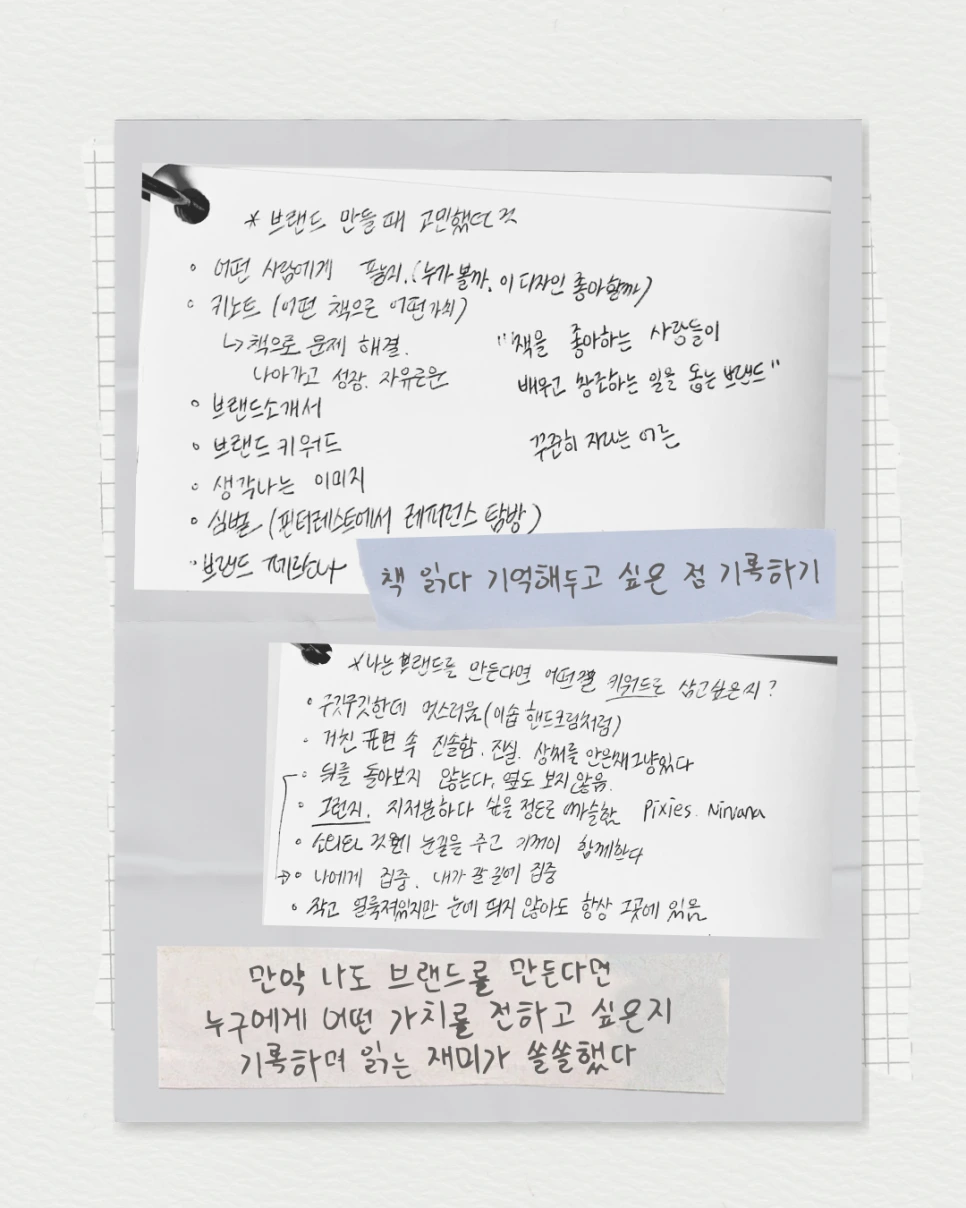 * 브랜드 만들 때 고민했던 것
• 어떤 사람에게 (누가 볼까, 이 디자인 좋아할까)
• 키노트 (어떤 책으로 어떤 가치)
↳ 책으로 문제 해결.
나아가고 성장. 자유로운
"책을 좋아하는 사람들이
배우고 창조하는 일을 돕는 브랜드"
꾸준히 자라는 어른
• 브랜드소개서
• 브랜드 키워드
• 생각나는 이미지
• 심벌 (핀터레스트에서 레퍼런스 탐방)
• 브랜드
책 읽다 기억해두고 싶은 점 기록하기
* 나는 브랜드를 만든다면 어떤걸 키워드로 삼고싶은지?
• 구깃구깃한데 멋스러움 (이솝 핸드크림처럼)
• 거친 표면 속 진솔함. 진실. 상처를 안은채 그냥있다
• 뒤를 돌아보지 않는다, 옆도 보지 않음.
• 그런지. 지저분하다 싶을 정도로 Pixies. Nirvana
• 눈길을 주고 기꺼이 함께한다
→• 나에게 집중. 내가 갈 길에 집중
• 작고 얼룩져있지만 눈에 띄지 않아도 항상 그곳에 있음
만약 나도 브랜드를 만든다면
누구에게 어떤 가치를 전하고 싶은지
기록하며 읽는 재미가 쏠쏠했다